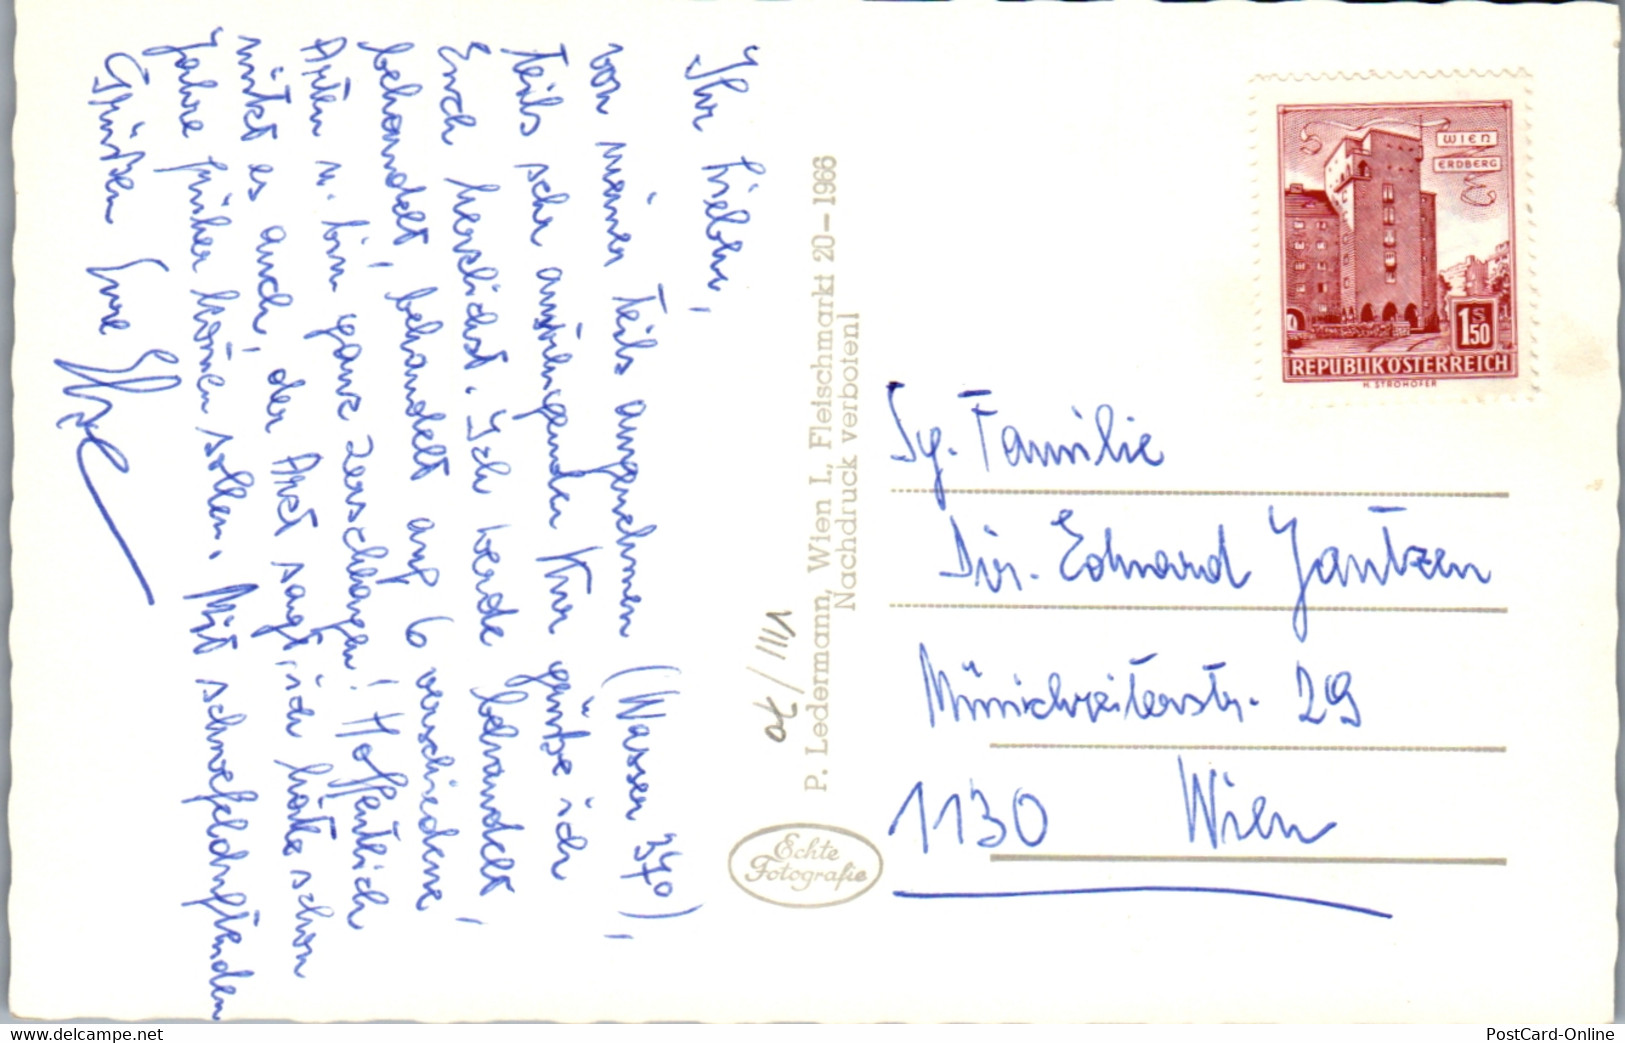 Ihr Lieben,
von meiner teils angenehmen (Wasser 37°),
teils sehr anstrengenden Kur grüße ich
Euch herzlichst. Ich werde behandelt,
behandelt, behandelt auf 6 verschiedene
Arten u. bin ganz zerschlagen! Hoffentlich
nützt es auch, der Arzt sagt, ich hätte schon
Jahre früher kom̄en sollen. Mit schwefelduftenden
Grüßen Eure
P. Ledermann, Wien I., Fleischmarkt 20–1966
Nachdruck verboten!
70/IIII
Echte
Fotografie
WIEN
ERDBERG
1 S 50
REPUBLIK ÖSTERREICH
H. STROHOFER
Sg. Familie
Dir. Eduard Jantzen
Münichreiterstr. 29
1130 Wien
www.delcampe.net
PostCard-Online